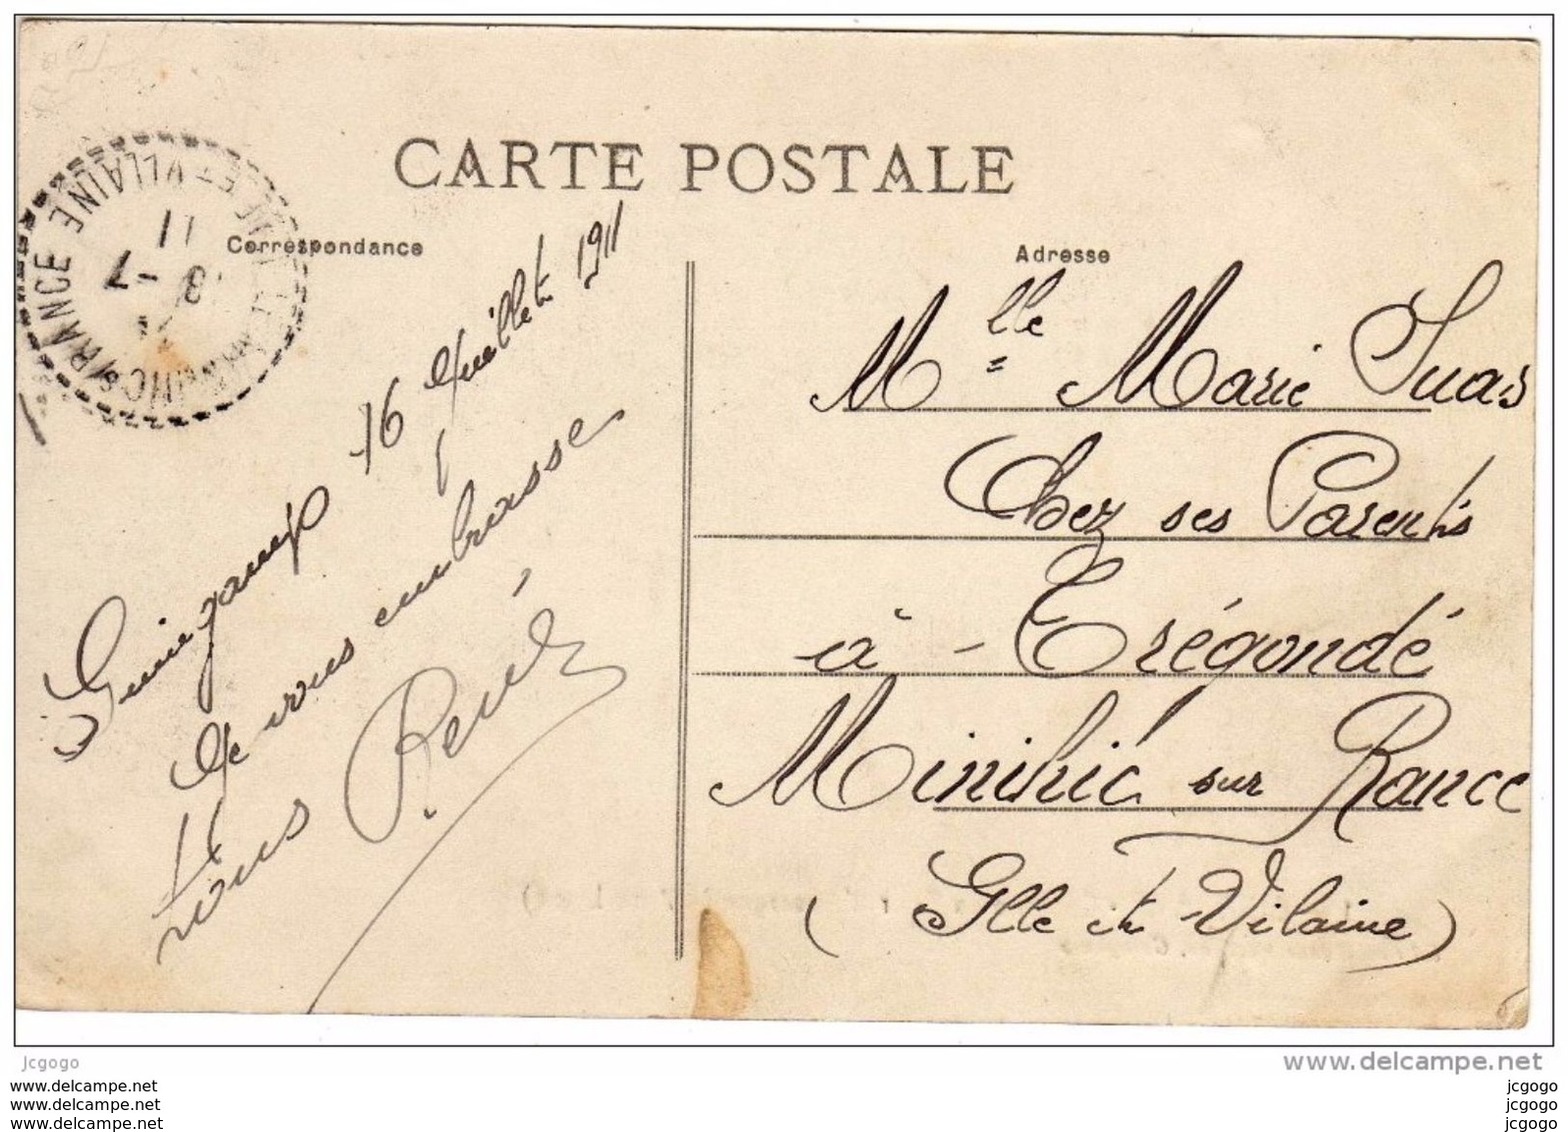 CARTE POSTALE
Correspondance
Adresse
Guingamp 16 Juillet 1911
Je vous embrasse
tous René
Mlle Marie Suas
Chez ses Parents
à - Trégondé
Minihic sur Rance
(Ille et Vilaine)
ILLE ET VILAINE
RANCE
18 -7
11
www.delcampe.net
jcgogo
www.delcampe.net
www.delcampe.net
www.delcampe.net
jcgogo
jcgogo
jcgogo